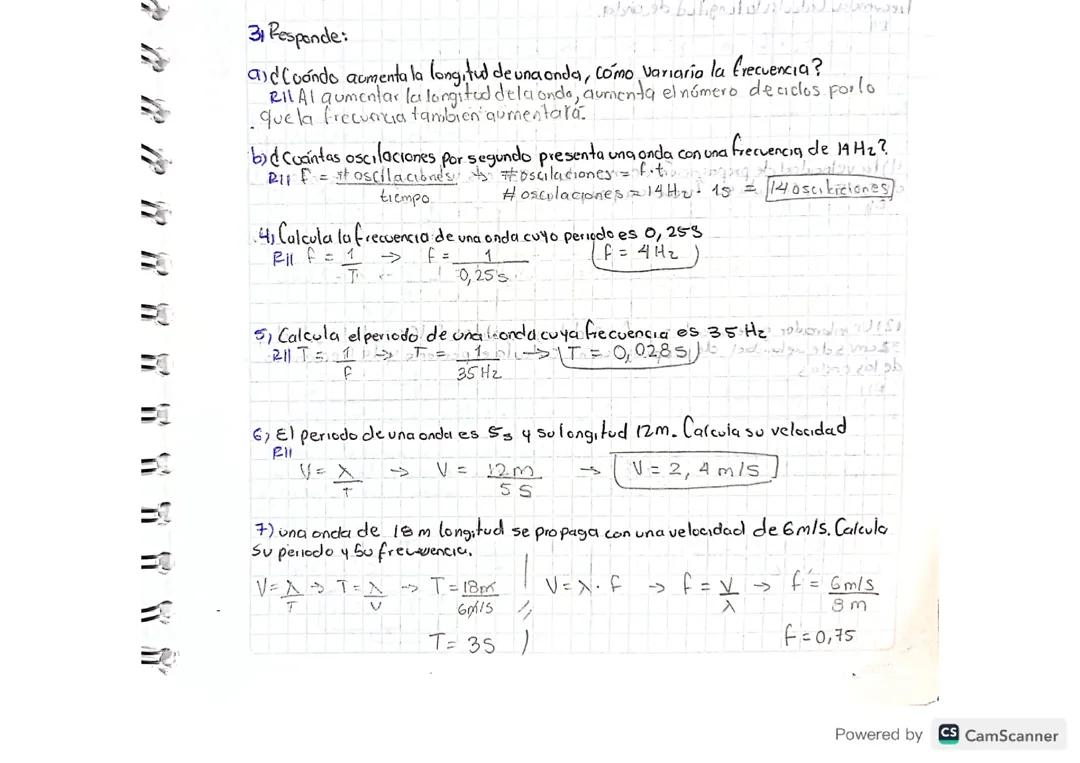 3) Responde:
a) ¿Cuándo aumenta la longitud de una onda, cómo variaría la frecuencia?
R// Al aumentar la longitud de la onda, aumenta el número de ciclos por lo
que la frecuencia también aumentará.
b) ¿Cuántas oscilaciones por segundo presenta una onda con una frecuencia de 14 Hz?
R// f = # oscilaciones / tiempo → # oscilaciones = f · t
# oscilaciones = 14 Hz · 1s = 14 oscilaciones
4) Calcula la frecuencia de una onda cuyo periodo es 0,25s
R// f = 1/T → f = 1/0,25s f = 4 Hz
5) Calcula el periodo de una onda cuya frecuencia es 35 Hz
R// T = 1/f → T = 1/35 Hz → T = 0,028 s
6) El periodo de una onda es 5s y su longitud 12m. Calcula su velocidad
R//
V = λ/T → V = 12m/5s → V = 2,4 m/s
7) una onda de 18 m longitud se propaga con una velocidad de 6m/s. Calcula
su periodo y su frecuencia.
V = λ/T → T = λ/V → T = 18m/6m/s V = λ · f → f = V/λ → f = 6m/s / 8m
T = 3s f = 0,75
Powered by CS CamScanner